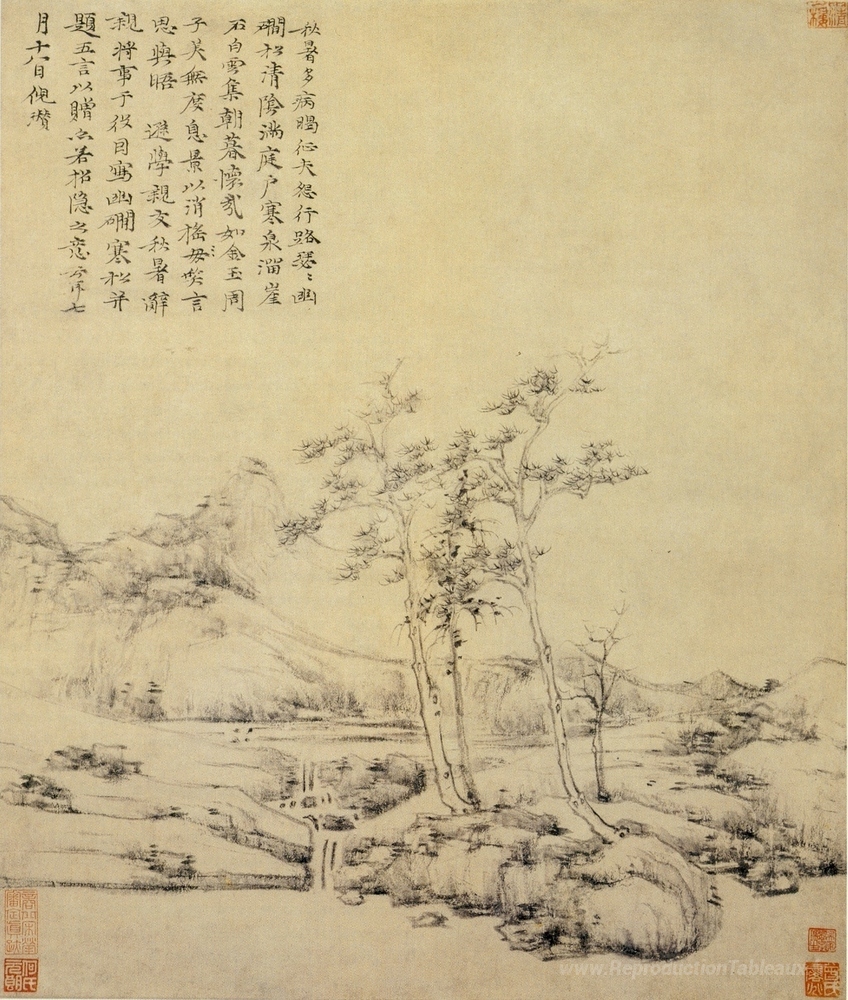 秋暑多病暍征夫怨行路瑟〻幽
澗松清陰滿庭戶寒泉溜崖
石白雲集朝暮懷哉如金玉周
子美無度息景以消搖笑言
思與晤 遜學親友秋暑辭
親將事于役因寫幽澗寒松并
題五言以贈亦若招隱之意云耳七
月十八日倪瓚
www.ReproductionTableaux